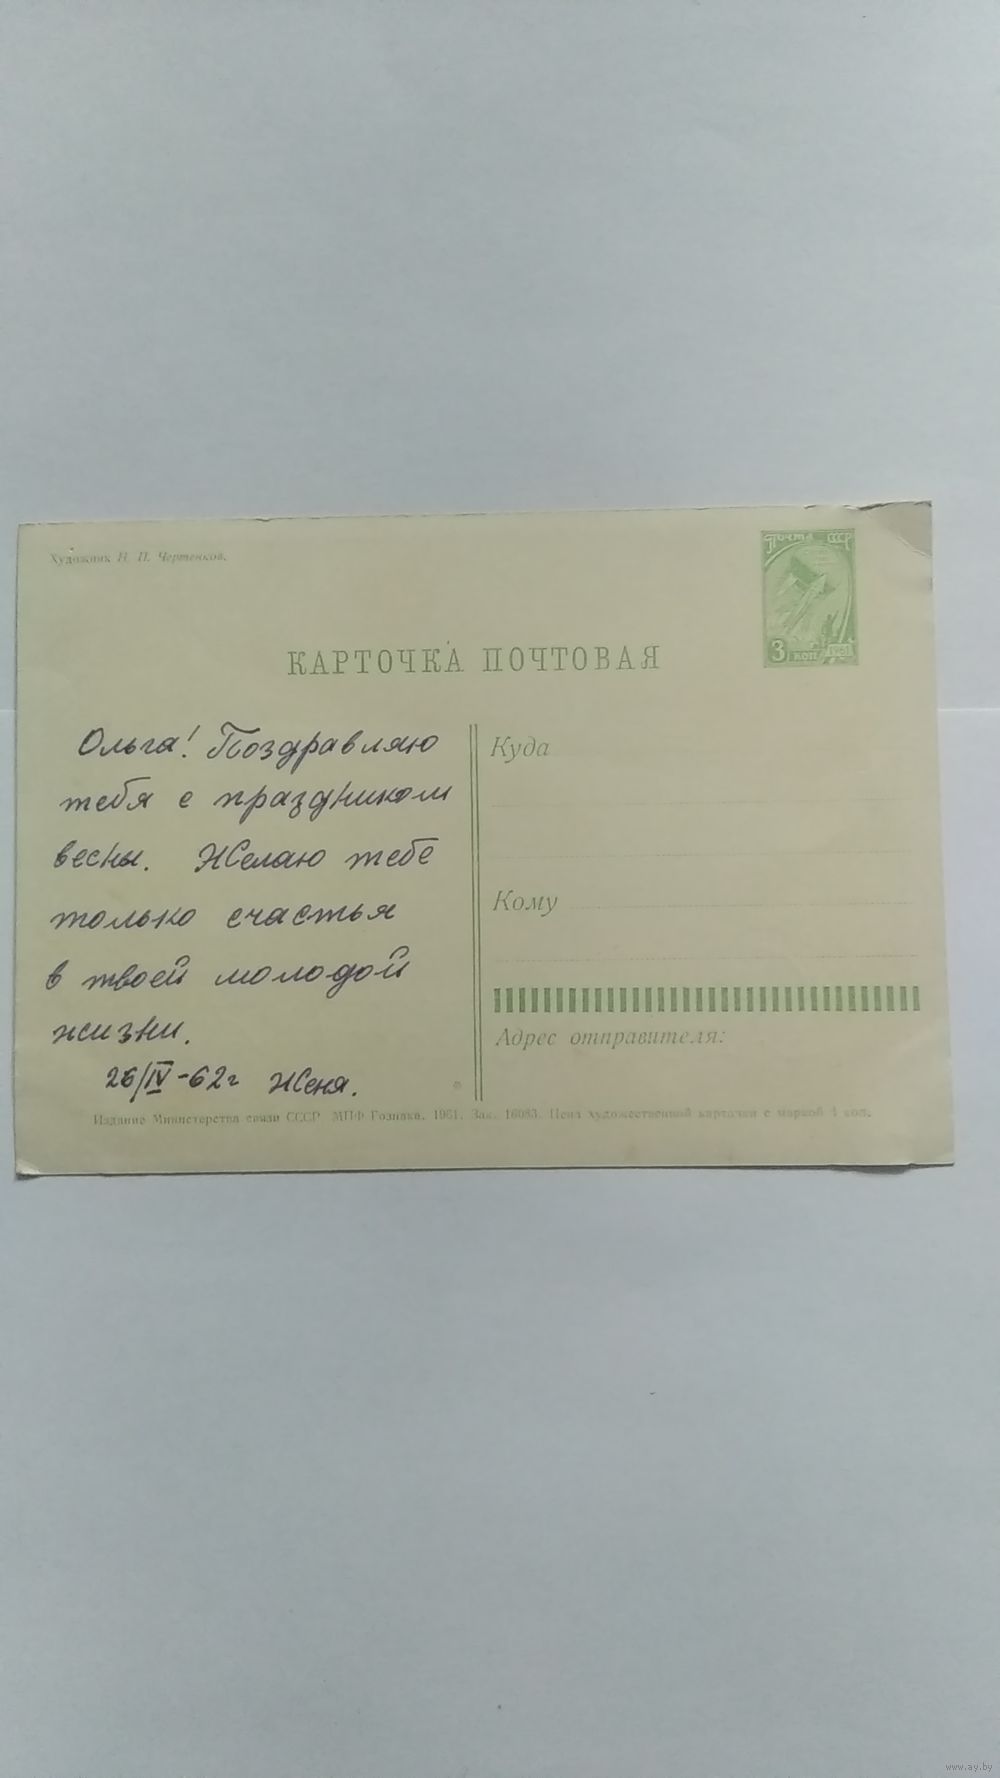 Художник Н. П. Чертенков.
Почта СССР
3 коп 1961
КАРТОЧКА ПОЧТОВАЯ
Ольга! Поздравляю
тебя с праздником
весны. Желаю тебе
только счастья
в твоей молодой
жизни.
26/IV-62г Женя.
Куда
Кому
Адрес отправителя:
Издание Министерства связи СССР МПФ Гознака. 1961. Зак. 16083. Цена художественной карточки с маркой 4 коп.
www.ay.by